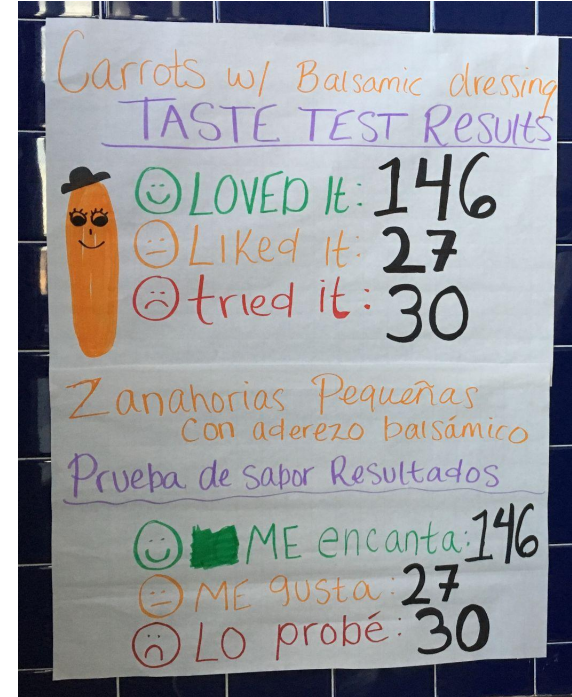 Carrots w/ Balsamic dressing
TASTE TEST Results
LOVED It: 146
Liked it: 27
tried it: 30
Zanahorias Pequeñas
con aderezo balsámico
Prueba de sabor Resultados
ME encanta: 146
ME gusta: 27
Lo probé: 30